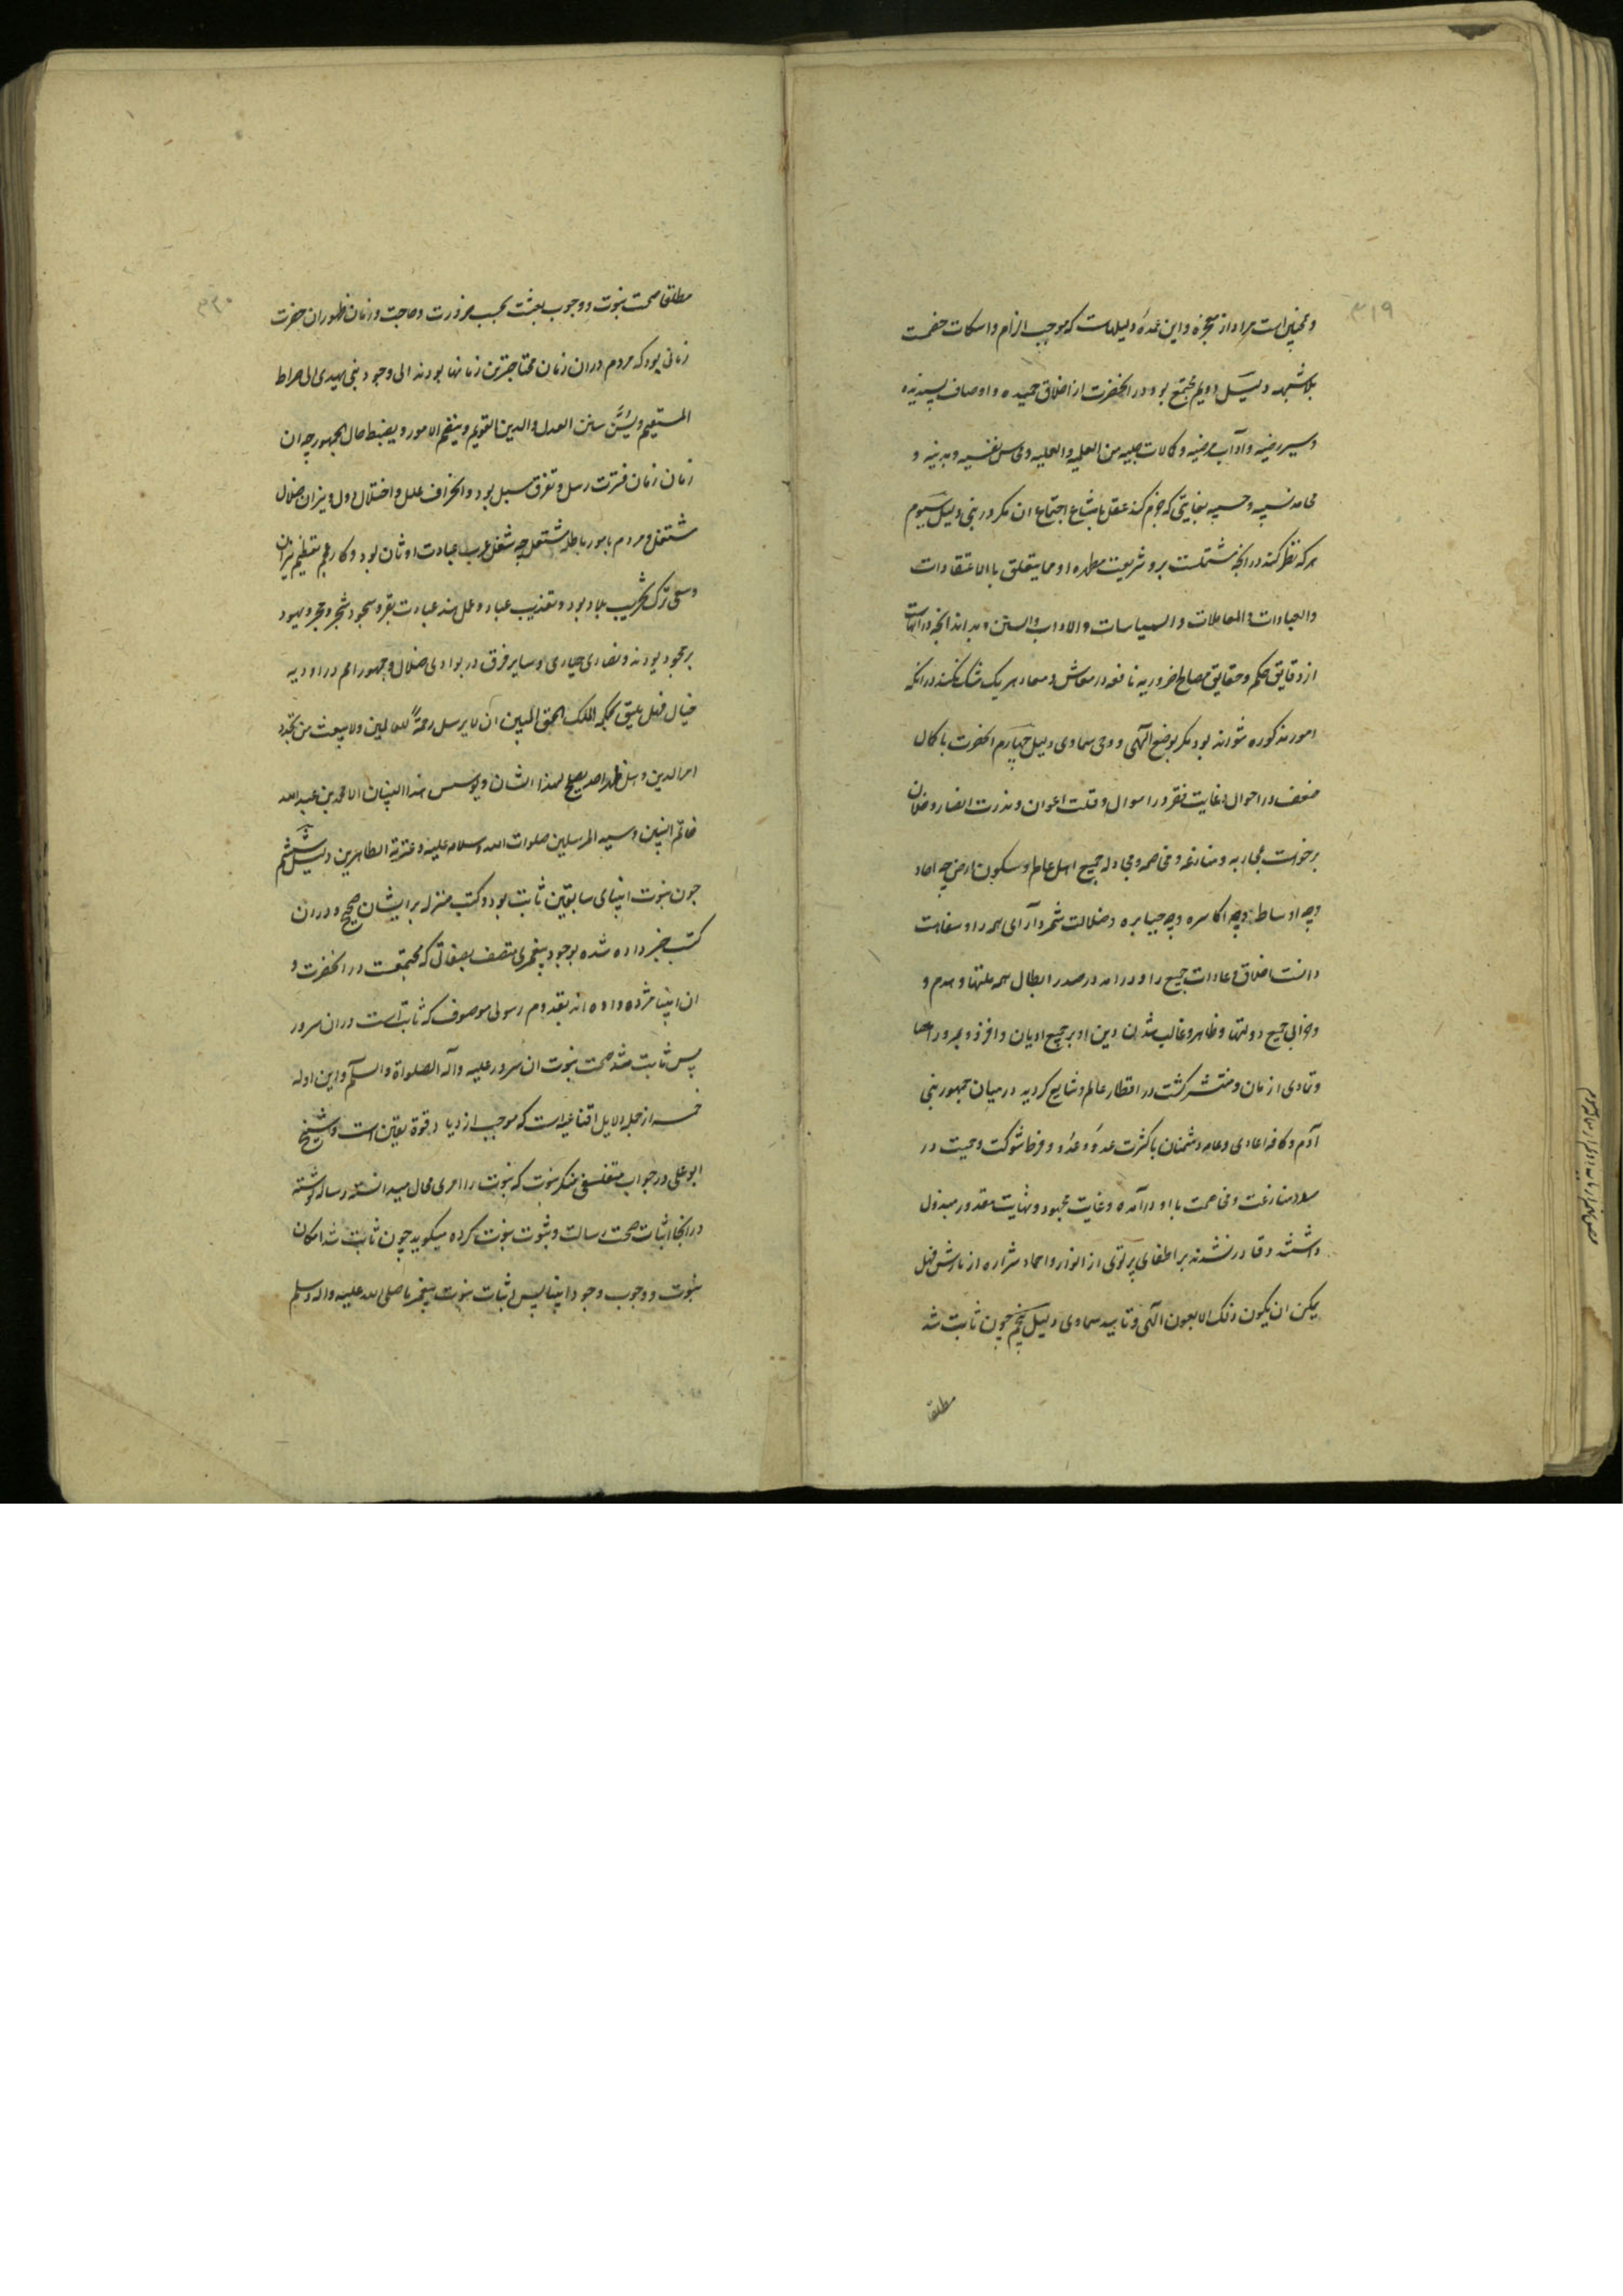 ۳۱۹
و همچنین است مراد از معجزه و این عمده دلیلهاست که موجب الزام و اسکات خصمست
بلا شبهه دلیل دویم مجتمع بود در انحضرت از اخلاق حمیده و اوصاف پسندیده
و سیر رضیه و آداب مرضیه و کمالات جلیه من العلمیه و العملیه و محاسن نفسیه و بدنیه و
محامد نسبیه و حسبیه بغایتی که جزم کند عقل بامتناع اجتماع ان مکر در نبی دلیل سیوم
هر که نظر کند در انچه مشتملست برو شریعت مطهره او مما یتعلق بالاعتقادات
والعبادات والمعاملات والسیاسات والاداب والسنن و بداند انچه در انهاست
از دقایق حکم و حقایق مصالح ضروریه نافعه در معاش و معاد هر یک شک نکند در انکه
امور مذکوره نتواند بود مکر بوضع آلهی و وحی سماوی دلیل چهارم انحضرت با کمال
ضعف در احوال و غایت فقر در اموال و قلت اعوان و ندرت انصار و خلان
برخواست بمحاربه و منازعه و مخاصمه و مجادله جمیع اهل عالم و سکون ارض چه احاد
و چه اوساط و چه اکاسره و چه جبابره و ضلالت شمرد آرای همه را و سفاهت
دانست اخلاق و عادات جمیع را و درامد در صدد ابطال همه ملتها و هدم و
و خرابی جمیع دولتها و ظاهر و غالب شد دین او بر جمیع ادیان و افزود بمرور اعصار
و تمادی ازمان و منتشر کشت در اقطار عالم و شایع کردید در میان جمهور بنی
آدم و کافه اعادی و عامه دشمنان با کثرت عدد و عدد و فرط شوکت و حمیت در
صدد منازعت و مخاصمت با او درآمده و غایت مجهود و نهایت مقدور مبذول
داشتند و قادر نشدند بر اطفای پرتوی از انوار و اخماد شراره از نارش فهل
یمکن ان یکون ذلک الا بعون آلهی و تایید سماوی دلیل پنجم چون ثابت شد
مطلقا
۳۲۰
مطلقا صحت نبوت و وجوب بعثت بحسب ضرورت و حاجت و زمان ظهور ان حضرت
زمانی بود که مردم در ان زمان محتاجترین زمانها بودند الی وجود نبی یهدی الی صراط
المستقیم و یسن سنن العدل والدین القویم و ینظم الامور و یضبط حال الجمهور چه ان
زمان زمان فترت رسل و تفرق سبل بود و انحراف ملل و اختلال دول و نیران ضلال
مشتعل و مردم بامور باطله مشتغل چه شغل عرب عبادت اوثان بود و کار عجم تعظیم نیران
و سعی ترک تخریب بلاد بود و تعذیب عباد و عمل هند عبادت بقر و سجود شجر و حجر و یهود
بر جحود بودند و نصاری حیاری و سایر فرق در بوادی ضلال و جمهور امم در اودیه
خیال فهل یلیق بحکمه الملک الحق المبین ان لا یرسل رحمة للعالمین ولا یبعث من یجدد
امر الدین و هل ظهر احد یصلح لهذا الشان و یوسس هذا البنیان الا محمد بن عبدالله
خاتم النبیین و سید المرسلین صلوات الله و سلامه علیه و عترته الطاهرین دلیل ششم
چون نبوت انبیای سابقین ثابت بود و کتب منزله بر ایشان صحیح و در ان
کتب خبر داده شده بوجود پیغمبری متصف بصفاتی که مجتمعست در انحضرت و
ان انبیا مژده داده اند بقدوم رسولی موصوف که ثابتست در ان سرور
پس ثابت شد صحت نبوت ان سرور علیه و آله الصلواة والسلم و این ادله
خمسه از جمله دلایل اقناعیه است که موجب ازدیاد قوة یقین است و شیخ
ابو علی در جواب متفلسفی منکر نبوت که نبوت را امری محال میدانسته رساله نوشته
در انجا اثبات صحت رسالت و ثبوت نبوت کرده میکوید چون ثابت شد امکان
نبوت و وجوب وجود انبیا پس اثبات نبوت پیغمبر ما صلی الله علیه و اله و سلم